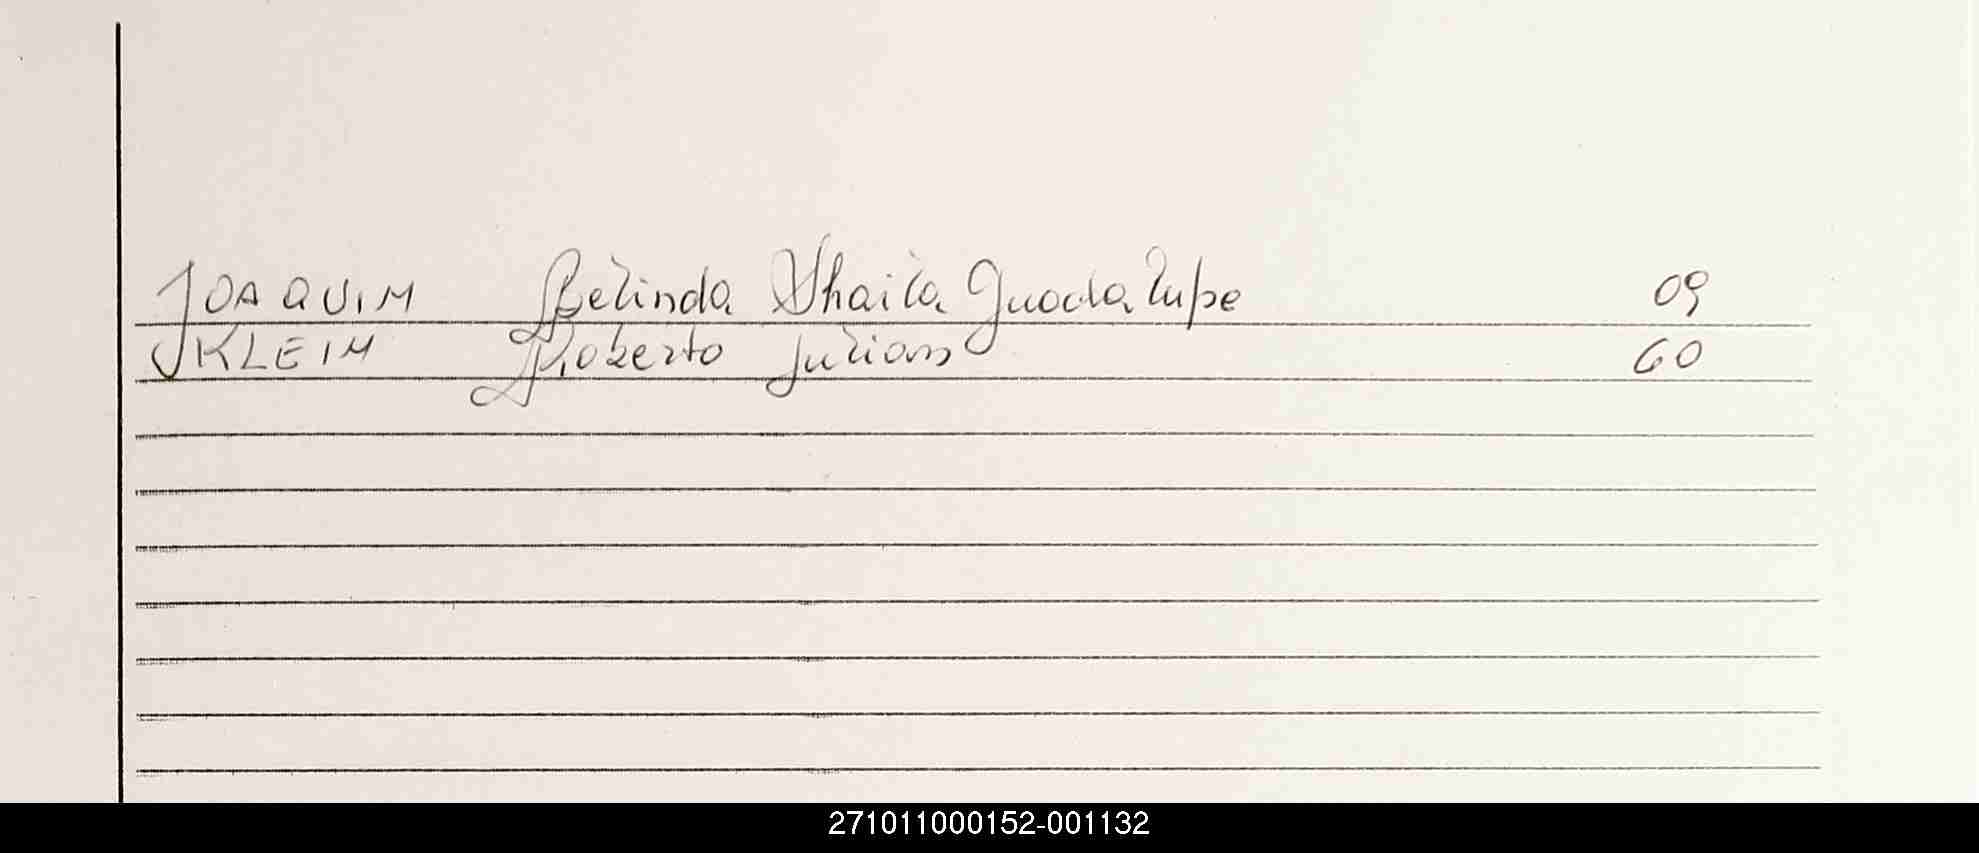 JOAQUIM Belinda Shaila Guadalupe 09
KLEIM Roberto Julian 60
271011000152-001132